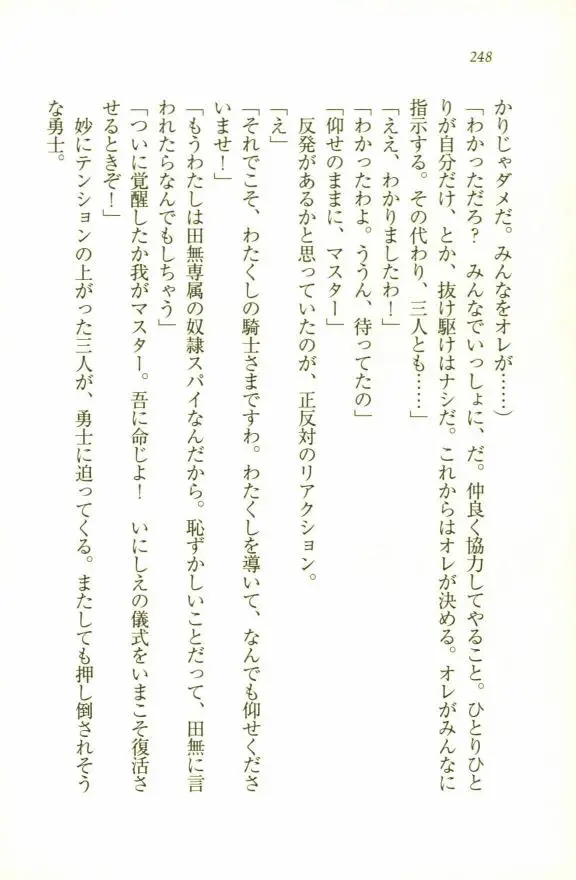 248
かりじゃダメだ。みんなをオレが……）
「わかっただろ？　みんなでいっしょに、だ。仲良く協力してやること。ひとりひと
りが自分だけ、とか、抜け駆けはナシだ。これからはオレが決める。オレがみんなに
指示する。その代わり、三人とも……」
「ええ、わかりましたわ！」
「わかったわよ。ううん、待ってたの」
「仰せのままに、マスター」
　反発があるかと思っていたのが、正反対のリアクション。
「え」
「それでこそ、わたくしの騎士さまですわ。わたくしを導いて、なんでも仰せくださ
いませ！」
「もうわたしは田無専属の奴隷スパイなんだから。恥ずかしいことだって、田無に言
われたらなんでもしちゃう」
「ついに覚醒したか我がマスター。吾に命じよ！　いにしえの儀式をいまこそ復活さ
せるときぞ！」
　妙にテンションの上がった三人が、勇士に迫ってくる。またしても押し倒されそう
な勇士。